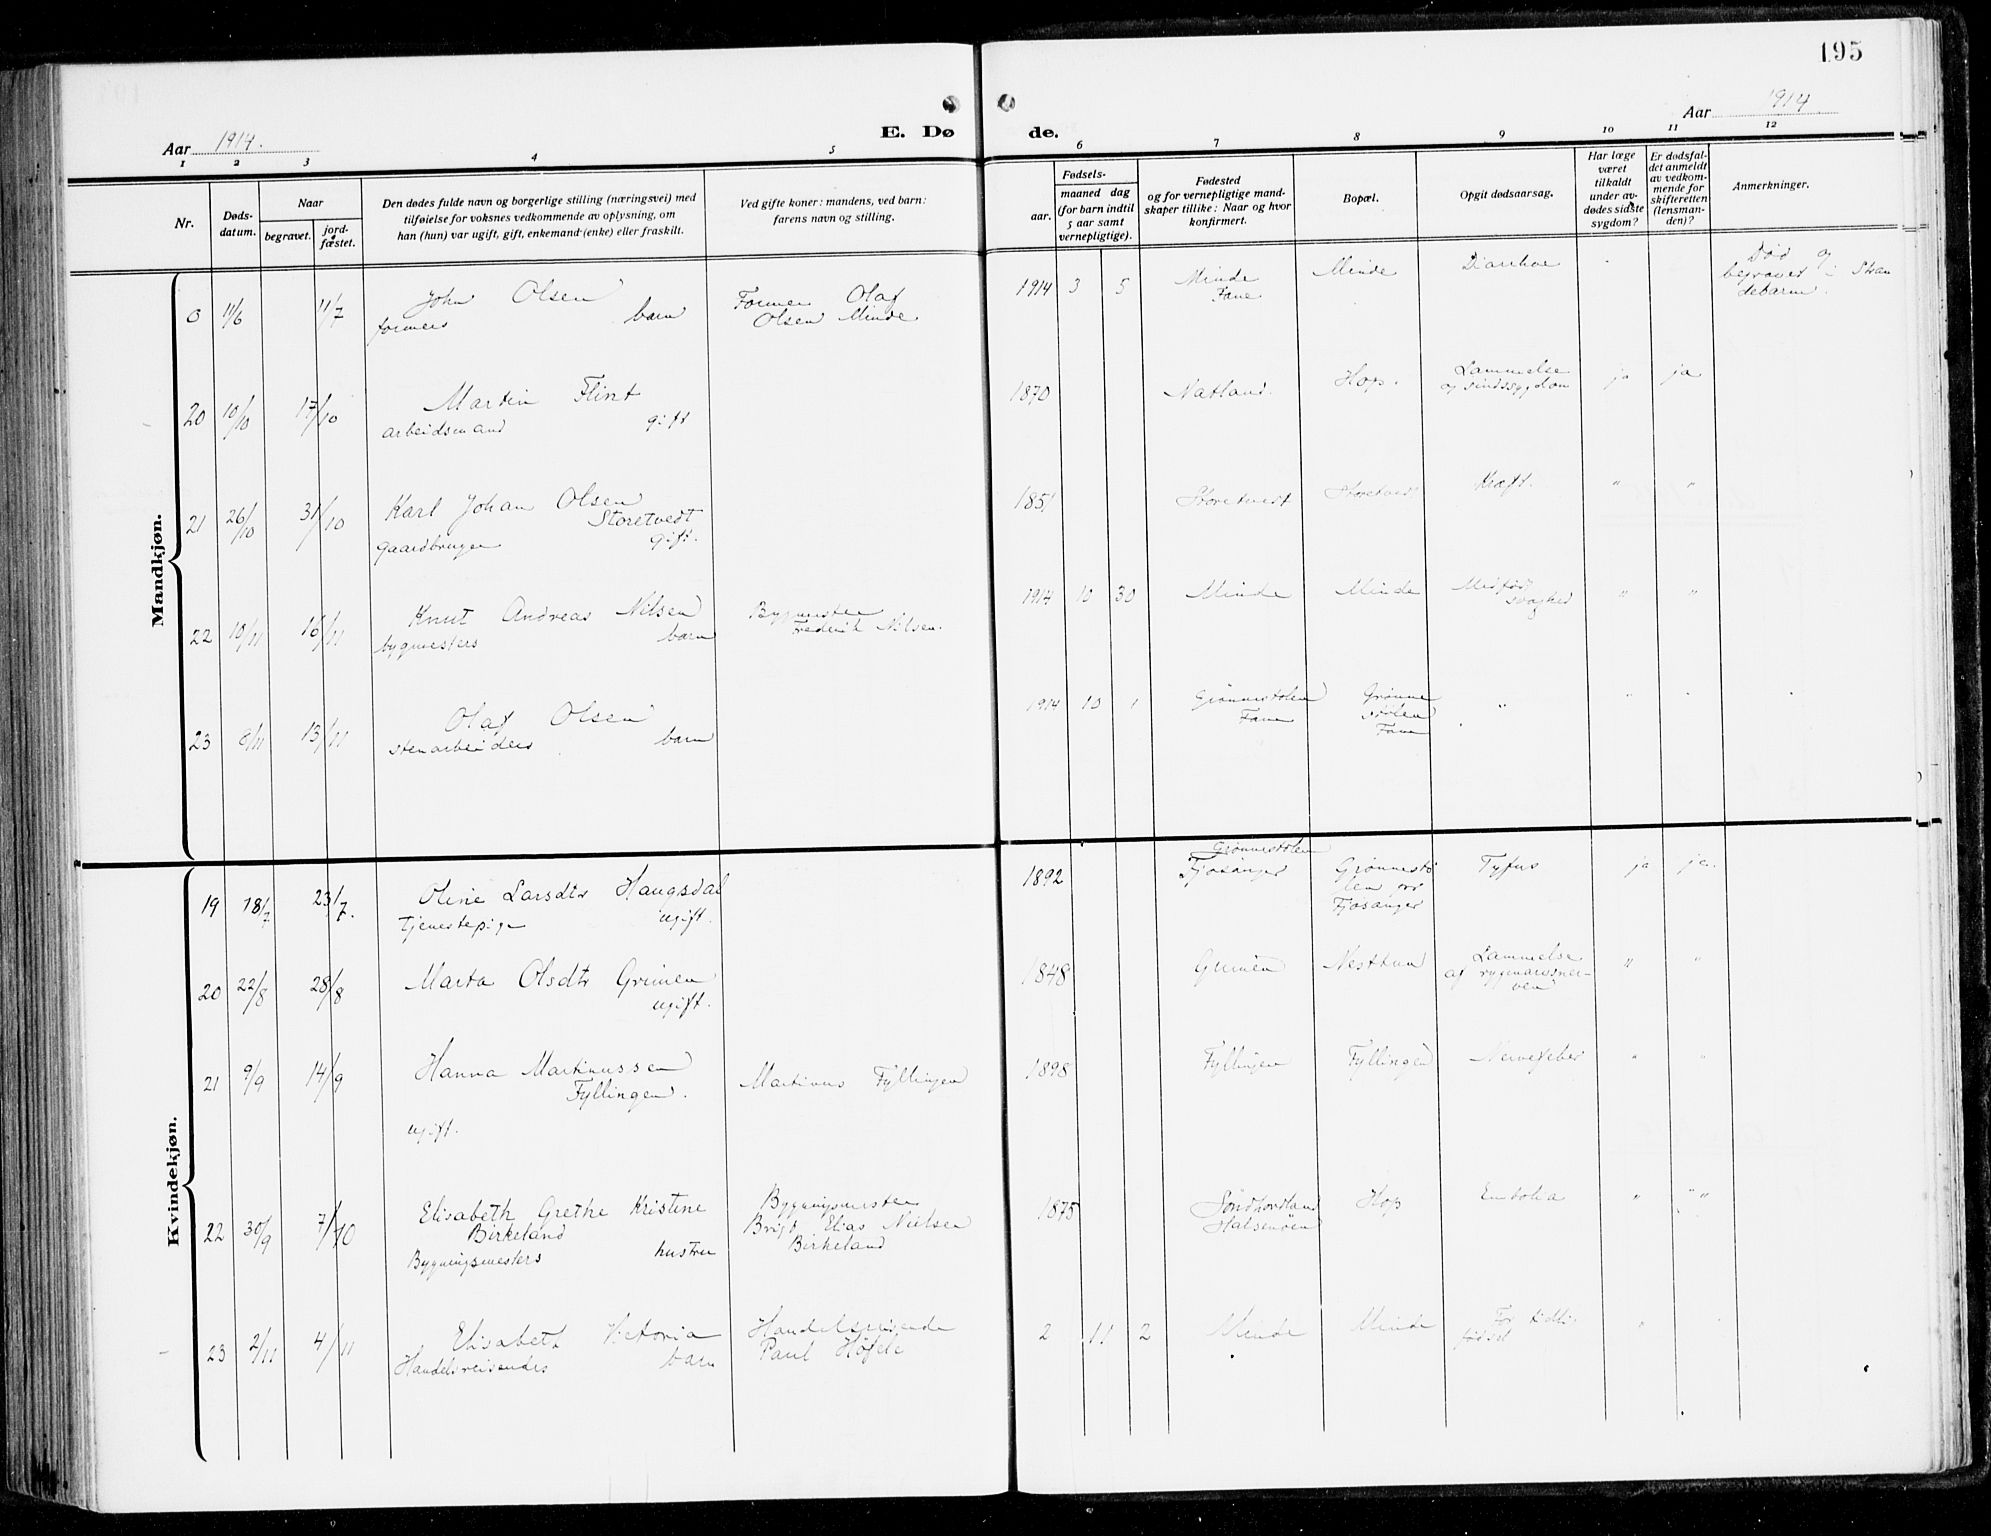 195
Aar 1914.
E. Dø
de.
Aar 1914
1 2 3 4 5
6 7 8 9 10 11 12
Nr.
Døds-
datum.
Naar
begravet.
jord-
fæstet.
Den dødes fulde navn og borgerlige stilling (næringsvei) med
tilføielse for voksnes vedkommende av oplysning, om
han (hun) var ugift, gift, enkemand (enke) eller fraskilt.
Ved gifte koner: mandens, ved barn:
farens navn og stilling.
Fødsels-
aar.
maaned dag
(for barn indtil
5 aar samt
vernepligtige).
Fødested
og for vernepligtige mand-
skaper tillike: Naar og hvor
konfirmert.
Bopæl.
Opgit dødsaarsag.
Har læge
været
tilkaldt
under av-
dødes sidste
sygdom?
Er dødsfal-
det anmeldt
av vedkom-
mende for
skifteretten
(lensman-
den)?
Anmerkninger.
Mandkjøn.
0 11/6 11/7 John Olsen
formers barn
Former Olaf
Olsen Minde
1914 3 5 Minde
Fane
Minde Diarrhoe
Død og
begravet i Stran
debarm.
20 10/10 17/10 Martin Flint
arbeidsmand gift
1870 Natland. Hop. Lammelse
og sindssygdom
ja ja
21 26/10 31/10 Karl Johan Olsen
Storetvedt
gaardbruger gift.
1851 Storetvedt Storetvedt Kræft. " "
22 10/11 16/11 Knut Andreas Nilsen
bygmesters barn
Bygmester
Frederik Nilsen.
1914 10 30 Minde Minde Medfød
svaghed
" "
23 /11 13/11 Olaf Olsen
stenarbeiders barn
1914 10 1 Grönnestolen
Fane
Grönne
stölen
Fane
"
Kvindekjøn.
19 18/7 23/7. Oline Larsdtr Haugsdal
tjenestepige ugift.
1892 Grönnestolen
Fjøsanger
Grönnestö
len pr
Fjøsanger
Tyfus ja ja.
20 22/8 28/8 Marta Olsdtr Grimen
ugift.
1848 Grimen Nesttun Lammelse
af rygmarvsner-
ven
" "
21 9/9 14/9 Hanna Martinussen
Fyllingen.
ugift.
Martinus Fyllingen
1898 Fyllingen Fyllingen Nervefeber " "
22 30/9 7/10 Elisabeth Grethe Kristine
Birkeland
Bygningsmesters hustru
Bygningsmester
Brigt Elias Nielsen
Birkeland
1875 Söndhordland
Halsenöen
Hop Embolia " "
23 2/11 4/11 Elisabeth Victoria
Handelsreisendes barn
Handelsreisende
Paul
2 11 2 Minde Minde For tidlig
födsel
"